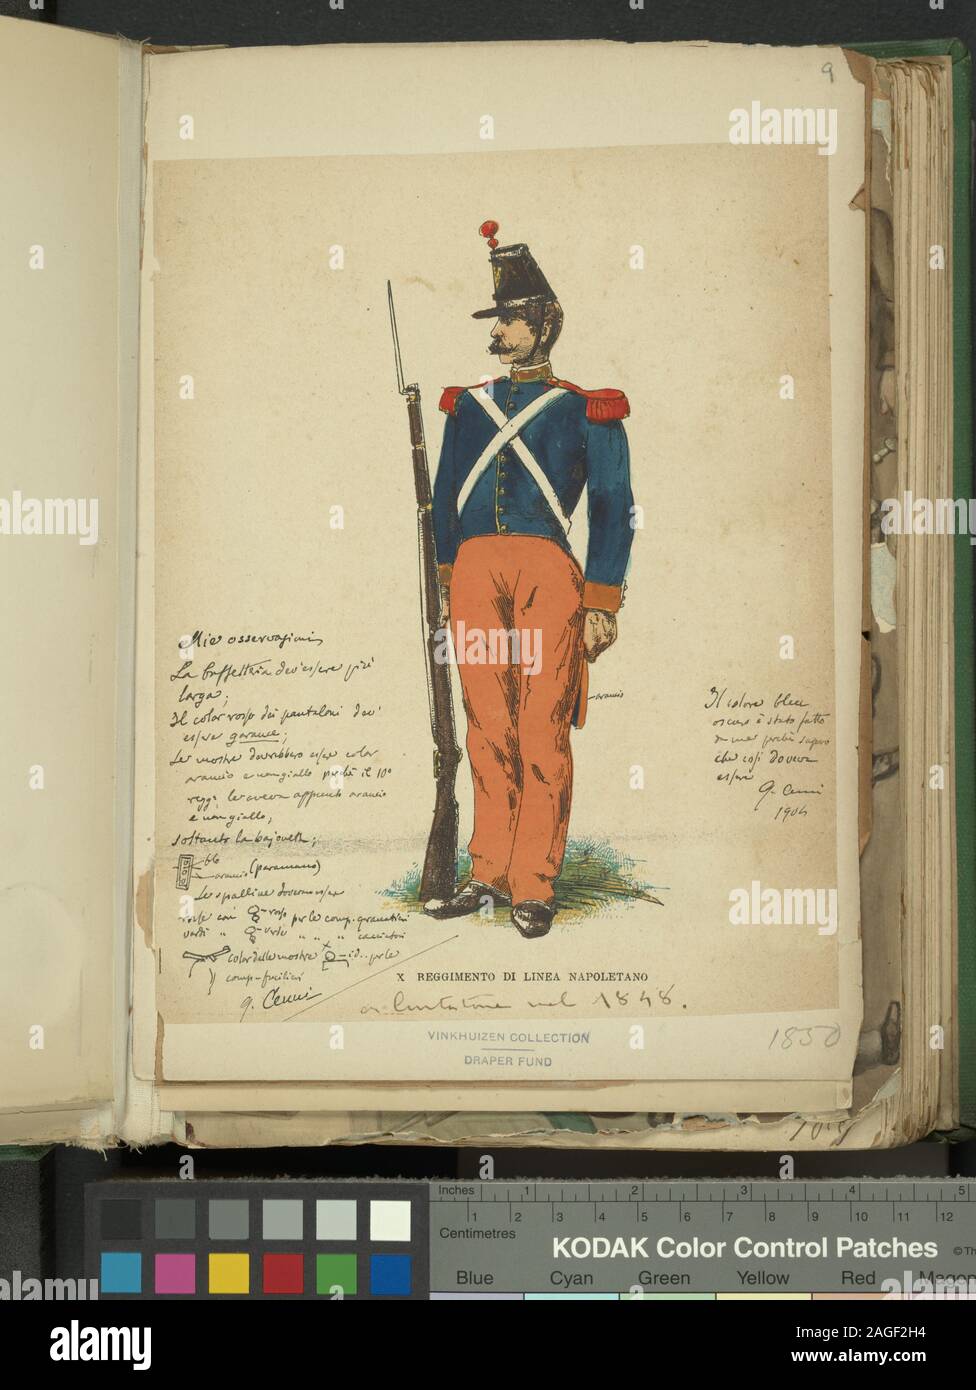 9
Mie osservazioni
La buffetteria dev'essere più
larga;
Il color rosso dei pantaloni dev'
essere garance;
Le mostre dovrebbero esser color
arancio e non giallo perchè il 10º
regg. le aveva appunto arancio
e non giallo;
soltanto la bajonetta;
bleu
arancio (paramano)
Le spalline dovevano esser
rosse con rosso per le comp. granatieri
verdi " verde " " " cacciatori
color delle mostre id.. per le
comp. fucilieri
Q. Cenni
arancio
Il colore bleu
oscuro è stato fatto
da me perchè sapevo
che così doveva
essere
Q. Cenni
1904
X REGGIMENTO DI LINEA NAPOLETANO
a Curtatone nel 1848.
VINKHUIZEN COLLECTION
DRAPER FUND
1850
Inches 1 2 3 4 5
1 2 3 4 5 6 7 8 9 10 11 12
Centimetres
KODAK Color Control Patches
Blue Cyan Green Yellow Red
a alamy
a
alamy
Image ID: 2AGF2H4
www.alamy.com